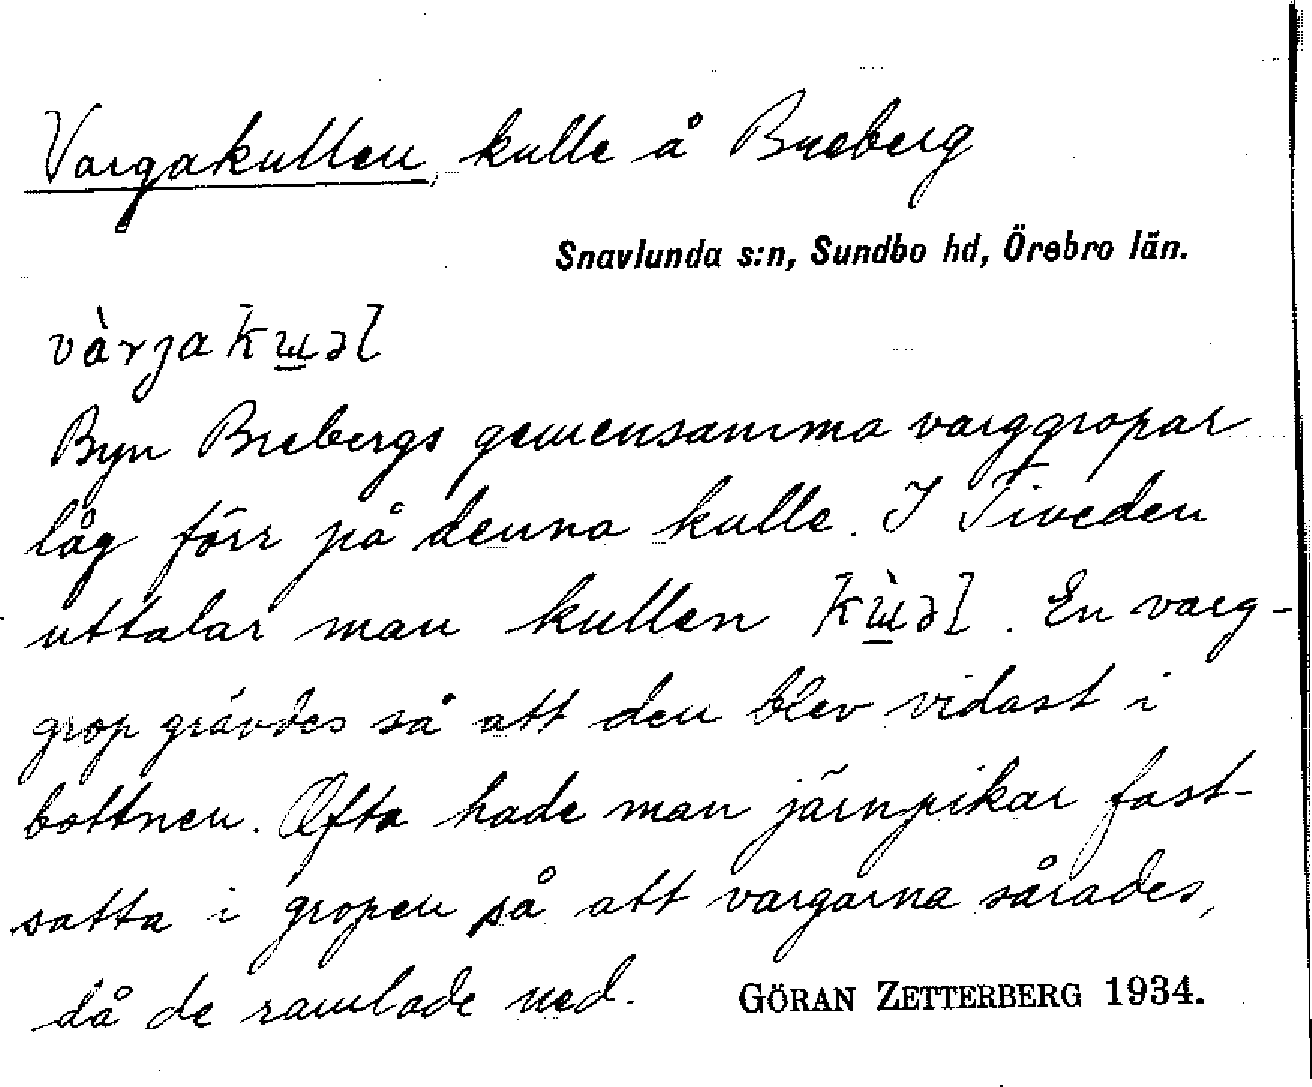 Vargakullen, kulle å Breberg
Snavlunda s:n, Sundbo hd, Örebro län.
vàrgakɯ̲əl
Byn Brebergs gemensamma varggropar
låg förr på denna kulle. I Tiveden
uttalar man kullen kɯ̲̀əl. En varg-
grop grävdes så att den blev vidast i
bottnen. Ofta hade man järnpikar fast-
satta i gropen så att vargarna sårades,
då de ramlade ned. GÖRAN ZETTERBERG 1934.